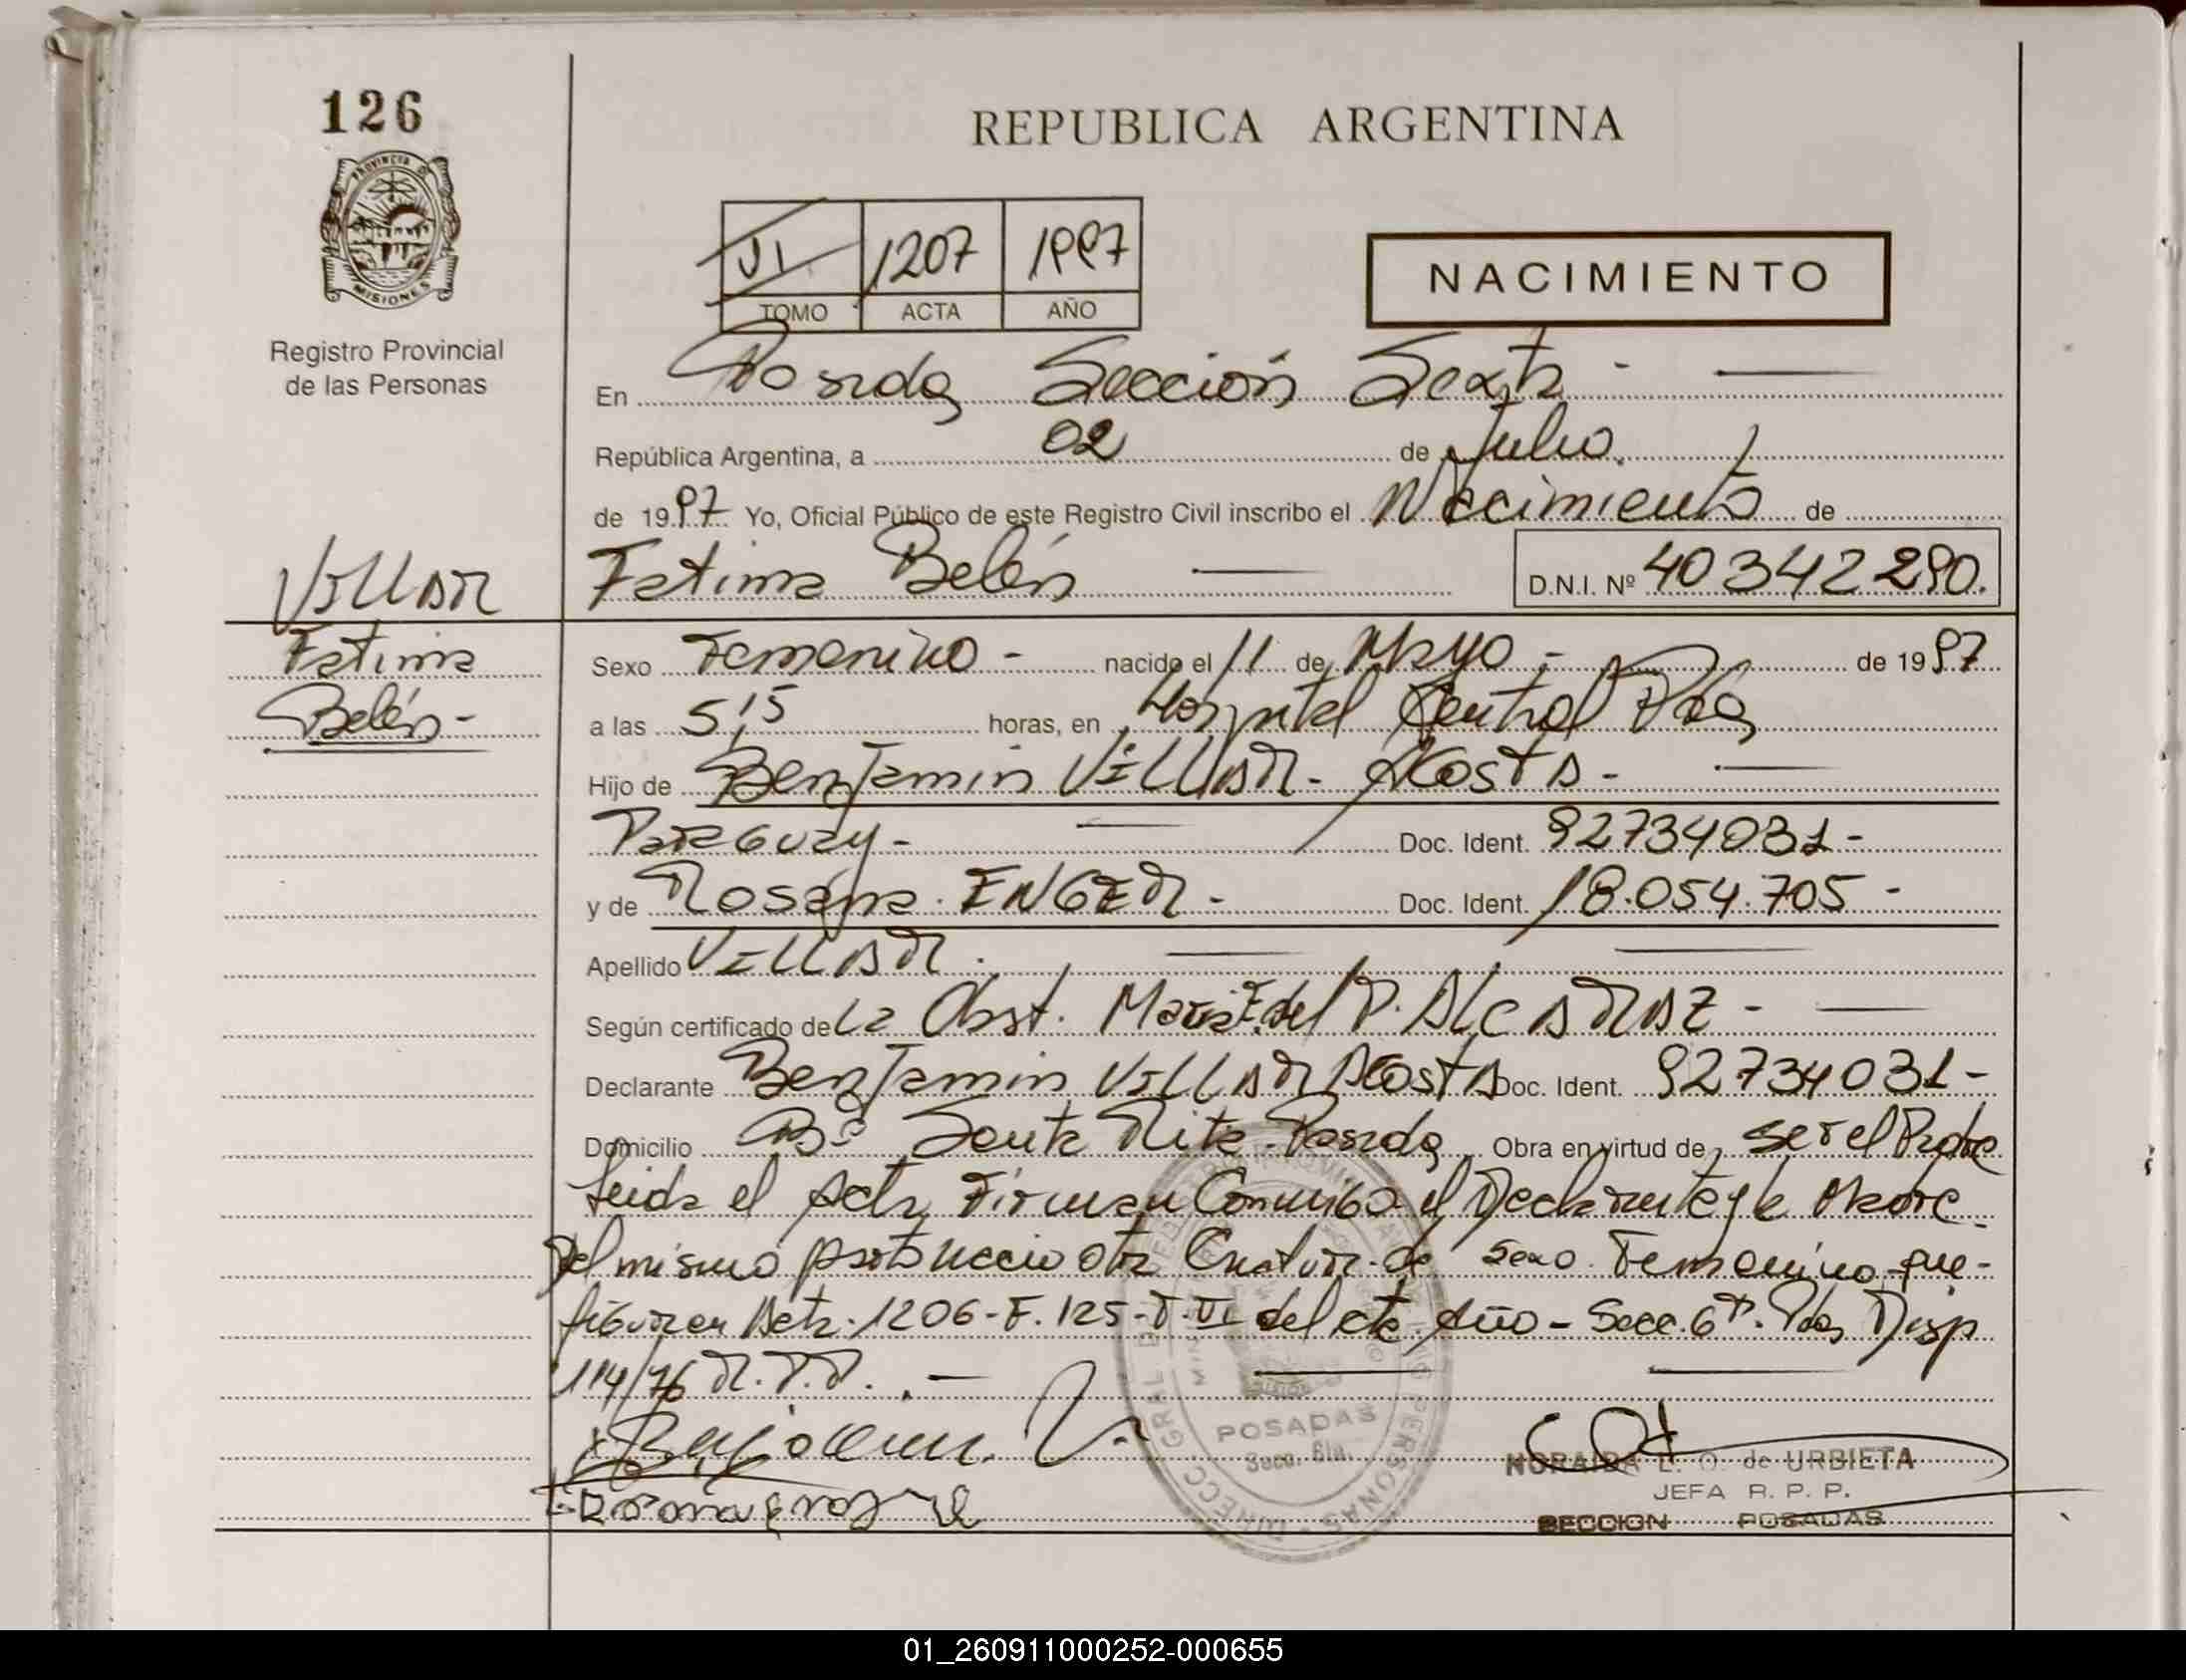 126
REPUBLICA ARGENTINA
PROVINCIA DE
MISIONES
Registro Provincial
de las Personas
VI 1207 1997
TOMO ACTA AÑO
NACIMIENTO
En Posadas Sección Sexta -
República Argentina, a 02 de Julio
de 1997 Yo, Oficial Público de este Registro Civil inscribo el Nacimiento de
VILLAR
Fatima Belén D.N.I. Nº 40342290.
Fatima
Belén-
Sexo Femenino - nacido el 11 de Mayo - de 1997
a las 5,15 horas, en Hospital Central Pdas
Hijo de Benjamin VILLAR - ACOSTA -
Paraguay - Doc. Ident. 92734031-
y de Rosana ENGER - Doc. Ident. 18.054.705 -
Apellido VILLAR.
Según certificado de La Obst. Maria E. del P. ALCARAZ -
Declarante Benjamin VILLAR ACOSTA Doc. Ident. 92734031-
Domicilio Bº Santa Rita Posadas Obra en virtud de ser el Padre
Leida el Acta Firman Conmigo el Declarante y la Madre
Del mismo parto nacio otra Criatura de Sexo Femenino que
figura en Acta 1206-F.125-T.VI del cte Año - Secc. 6ta. Pdas Disp
114/76 R.P.P. . -
POSADAS
Secc. 6ta.
NORAIDA L. O. de URBIETA
JEFA R. P. P.
SECCION POSADAS
01_260911000252-000655